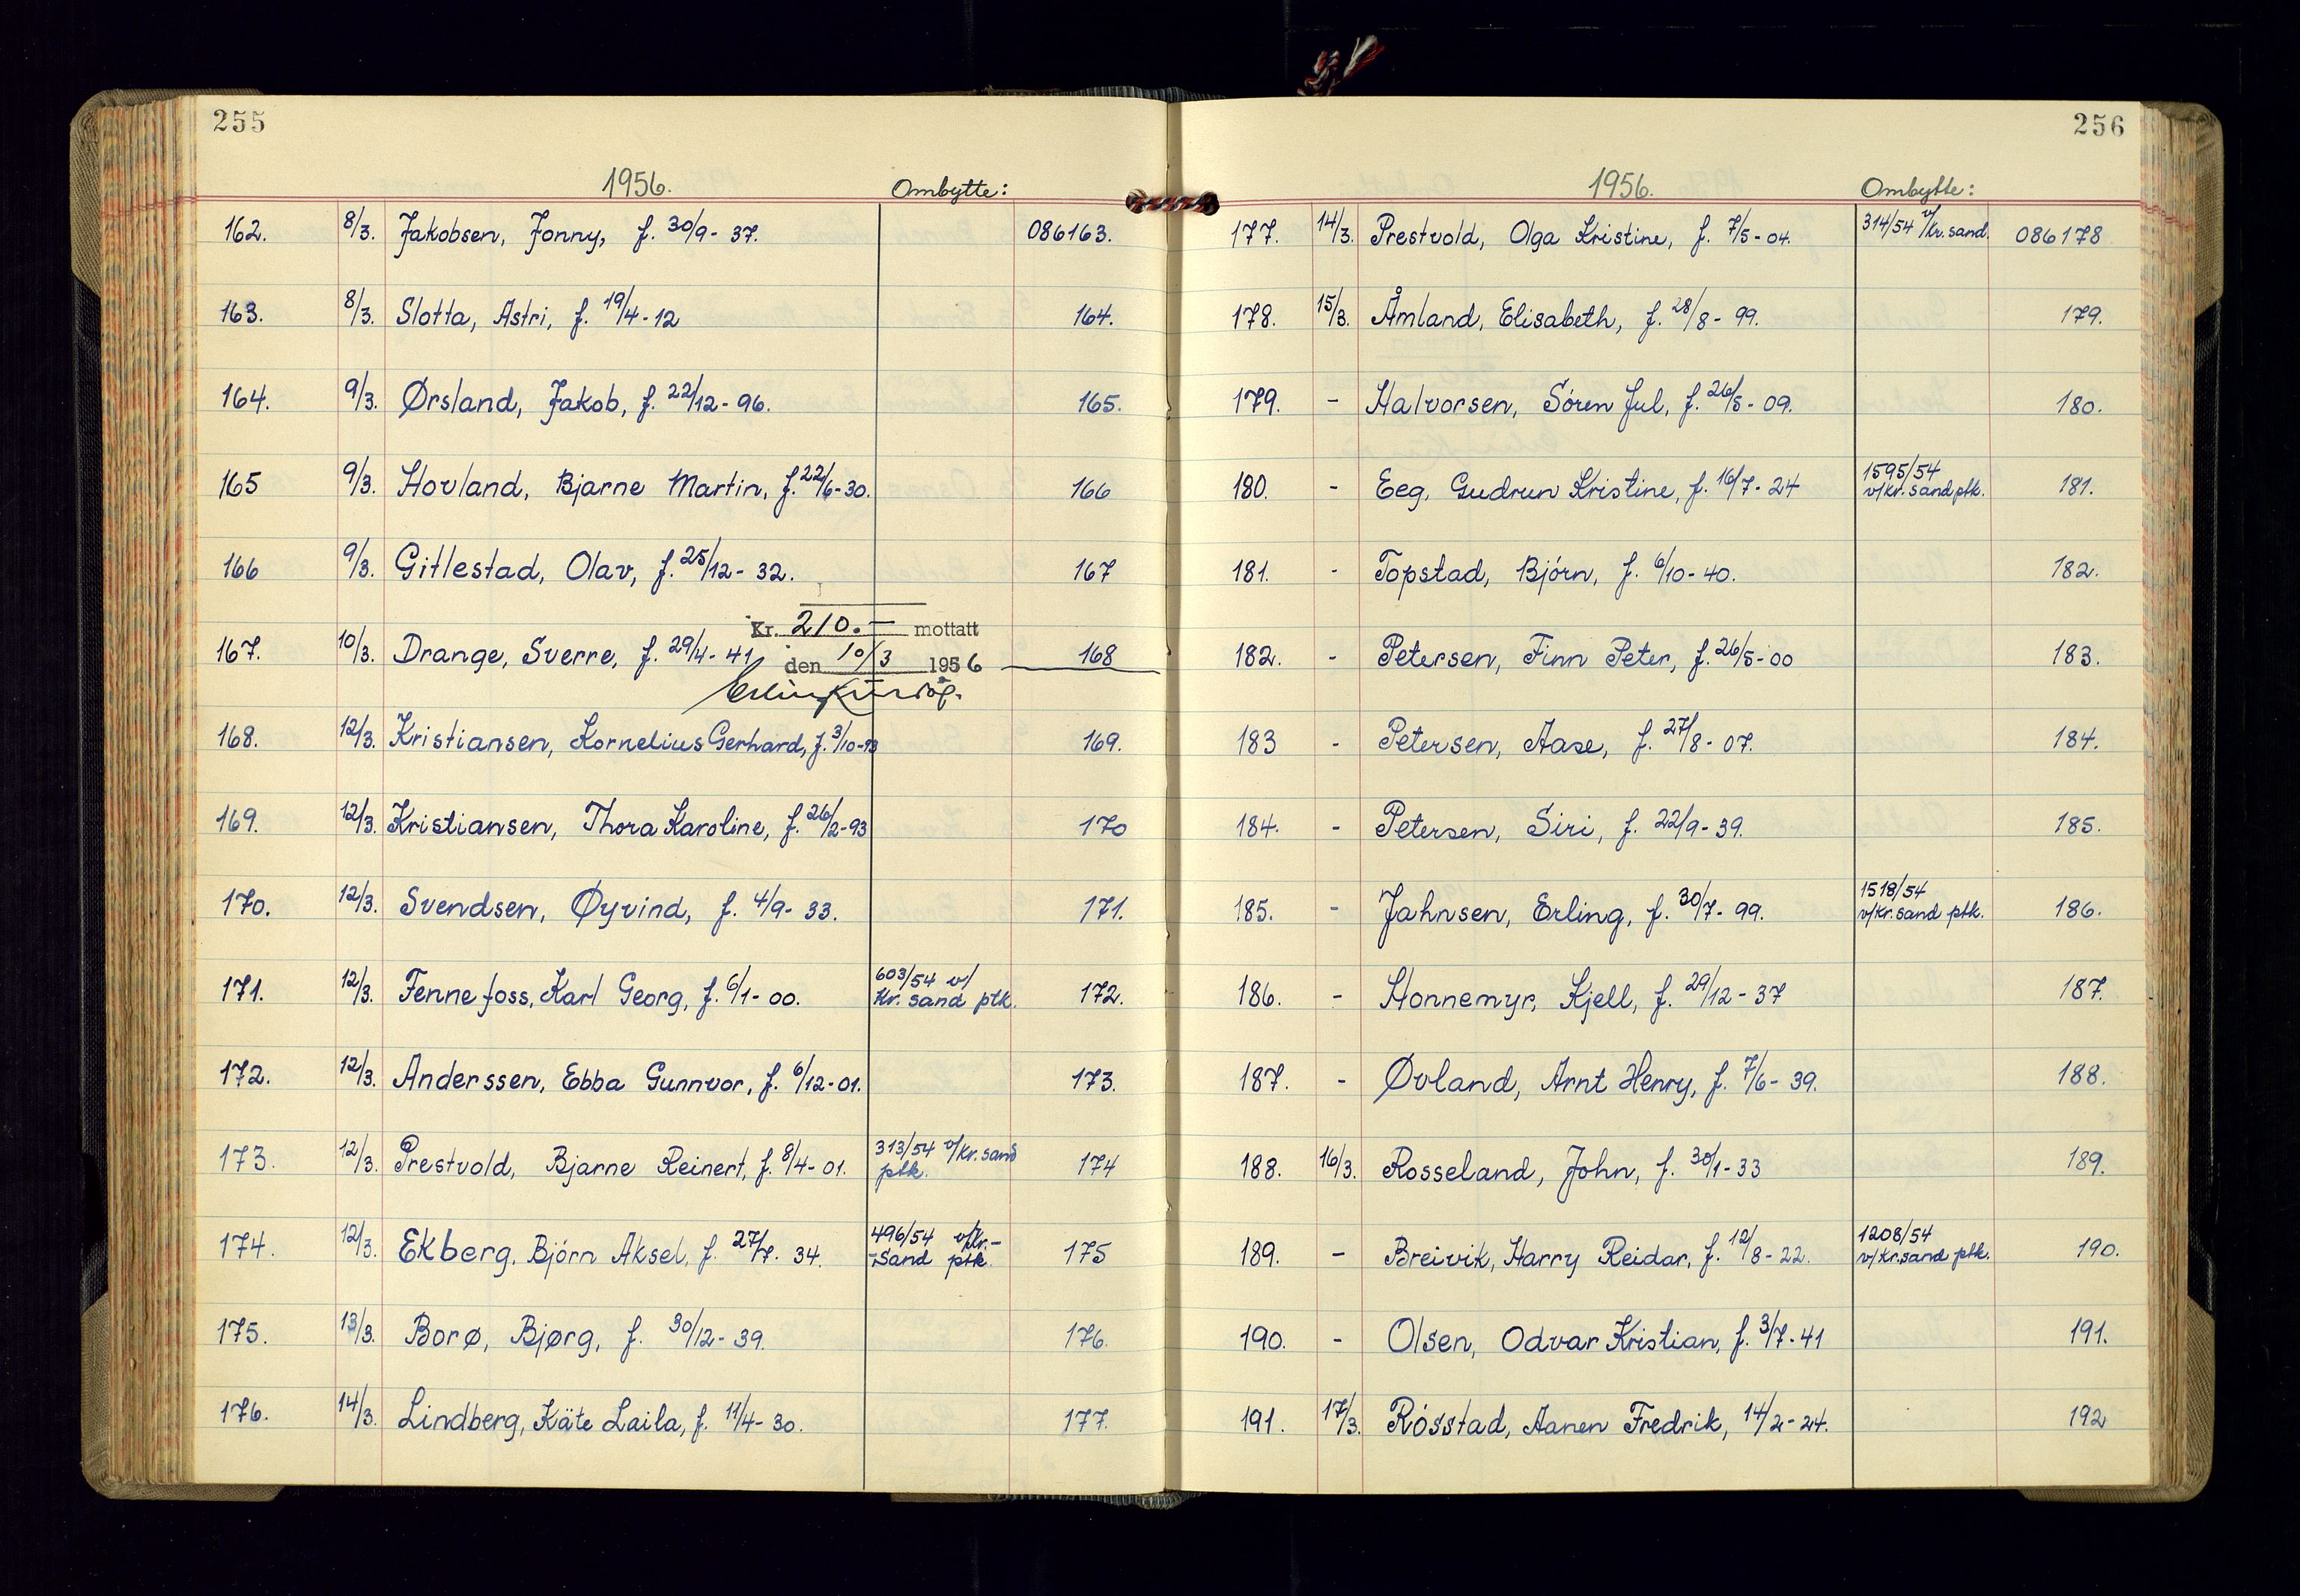 255
1956. Ombytte:
162. 8/3. Jakobsen, Jonny, f. 30/9- 37. 086163.
163. 8/3. Slotta, Astri, f. 19/4- 12 164.
164. 9/3. Ørsland, Jakob, f. 22/12- 96. 165.
165 9/3. Hovland, Bjarne Martin, f. 22/6- 30. 166
166 9/3. Gitlestad, Olav, f. 25/12- 32. 167
Kr. 210.- mottatt
167. 10/3. Drange, Sverre, f. 29/4- 41 den 10/3 1956 168
168. 12/3. Kristiansen, Kornelius Gerhard, f. 3/10-93 169.
169. 12/3. Kristiansen, Thora Karoline, f. 26/2-93 170
170. 12/3. Svendsen, Øyvind, f. 4/9- 33. 171.
171. 12/3. Fennefoss, Karl Georg, f. 6/1- 00. 603/54 v/
Kr. sand ptk. 172.
172. 12/3. Anderssen, Ebba Gunnvor, f. 6/12-01. 173.
173. 12/3. Prestvold, Bjarne Reinert, f. 8/4- 01. 313/54 v/Kr. sand
ptk. 174
174. 12/3. Ekberg, Bjórn Aksel, f. 27/7. 34. 496/54 v/Kr.-
-sand ptk. 175
175. 13/3. Borø, Bjørg, f. 30/12- 39. 176.
176. 14/3. Lindberg, Käte Laila, f. 11/4- 30. 177.
256
1956. Ombytte:
177. 14/3. Prestvold, Olga Kristine, f. 7/5- 04. 314/54 v/Kr. sand. 086178
178. 15/3. Åmland, Elisabeth, f. 28/8- 99. 179.
179. - Halvorsen, Sóren Jul, f. 26/5- 09. 180.
180. - Eeg, Gudrun Kristine, f. 16/7- 24 1595/54
v/Kr. sand ptk. 181.
181. - Topstad, Bjórn, f. 6/10- 40. 182.
182. - Petersen, Finn Peter, f. 26/5- 00 183.
183 - Petersen, Aase, f. 27/8- 07. 184.
184. - Petersen, Siri, f. 22/9- 39. 185.
185. - Jahnsen, Erling, f. 30/7- 99. 1518/54
v/Kr. sand ptk. 186.
186. - Honnemyr, Kjell, f. 29/12- 37 187.
187. - Øvland, Arnt Henry, f. 7/6- 39. 188.
188. 16/3. Rosseland, John, f. 30/1- 33 189.
189. - Breivik, Harry Reidar, f. 12/8- 22. 1208/54
v/Kr.sand ptk. 190.
190. - Olsen, Odvar Kristian, f. 3/7- 41 191.
191. 17/3. Rósstad, Aanen Fredrik, 14/2- 24. 192